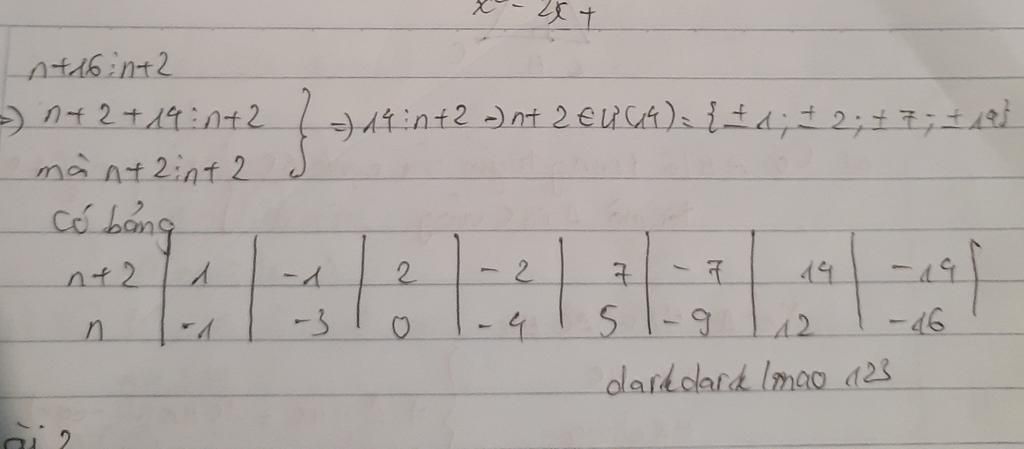 x² - 2x +
n+16⋮n+2
=) n+2+14⋮n+2 } =) 14⋮n+2 -) n+2 ∈ Ư(14) = {±1; ±2; ±7; ±14}
mà n+2⋮n+2
Có bảng
n+2 | 1 | -1 | 2 | -2 | 7 | -7 | 14 | -14
n | -1 | -3 | 0 | -4 | 5 | -9 | 12 | -16
darkdark lmao 123
ài 2